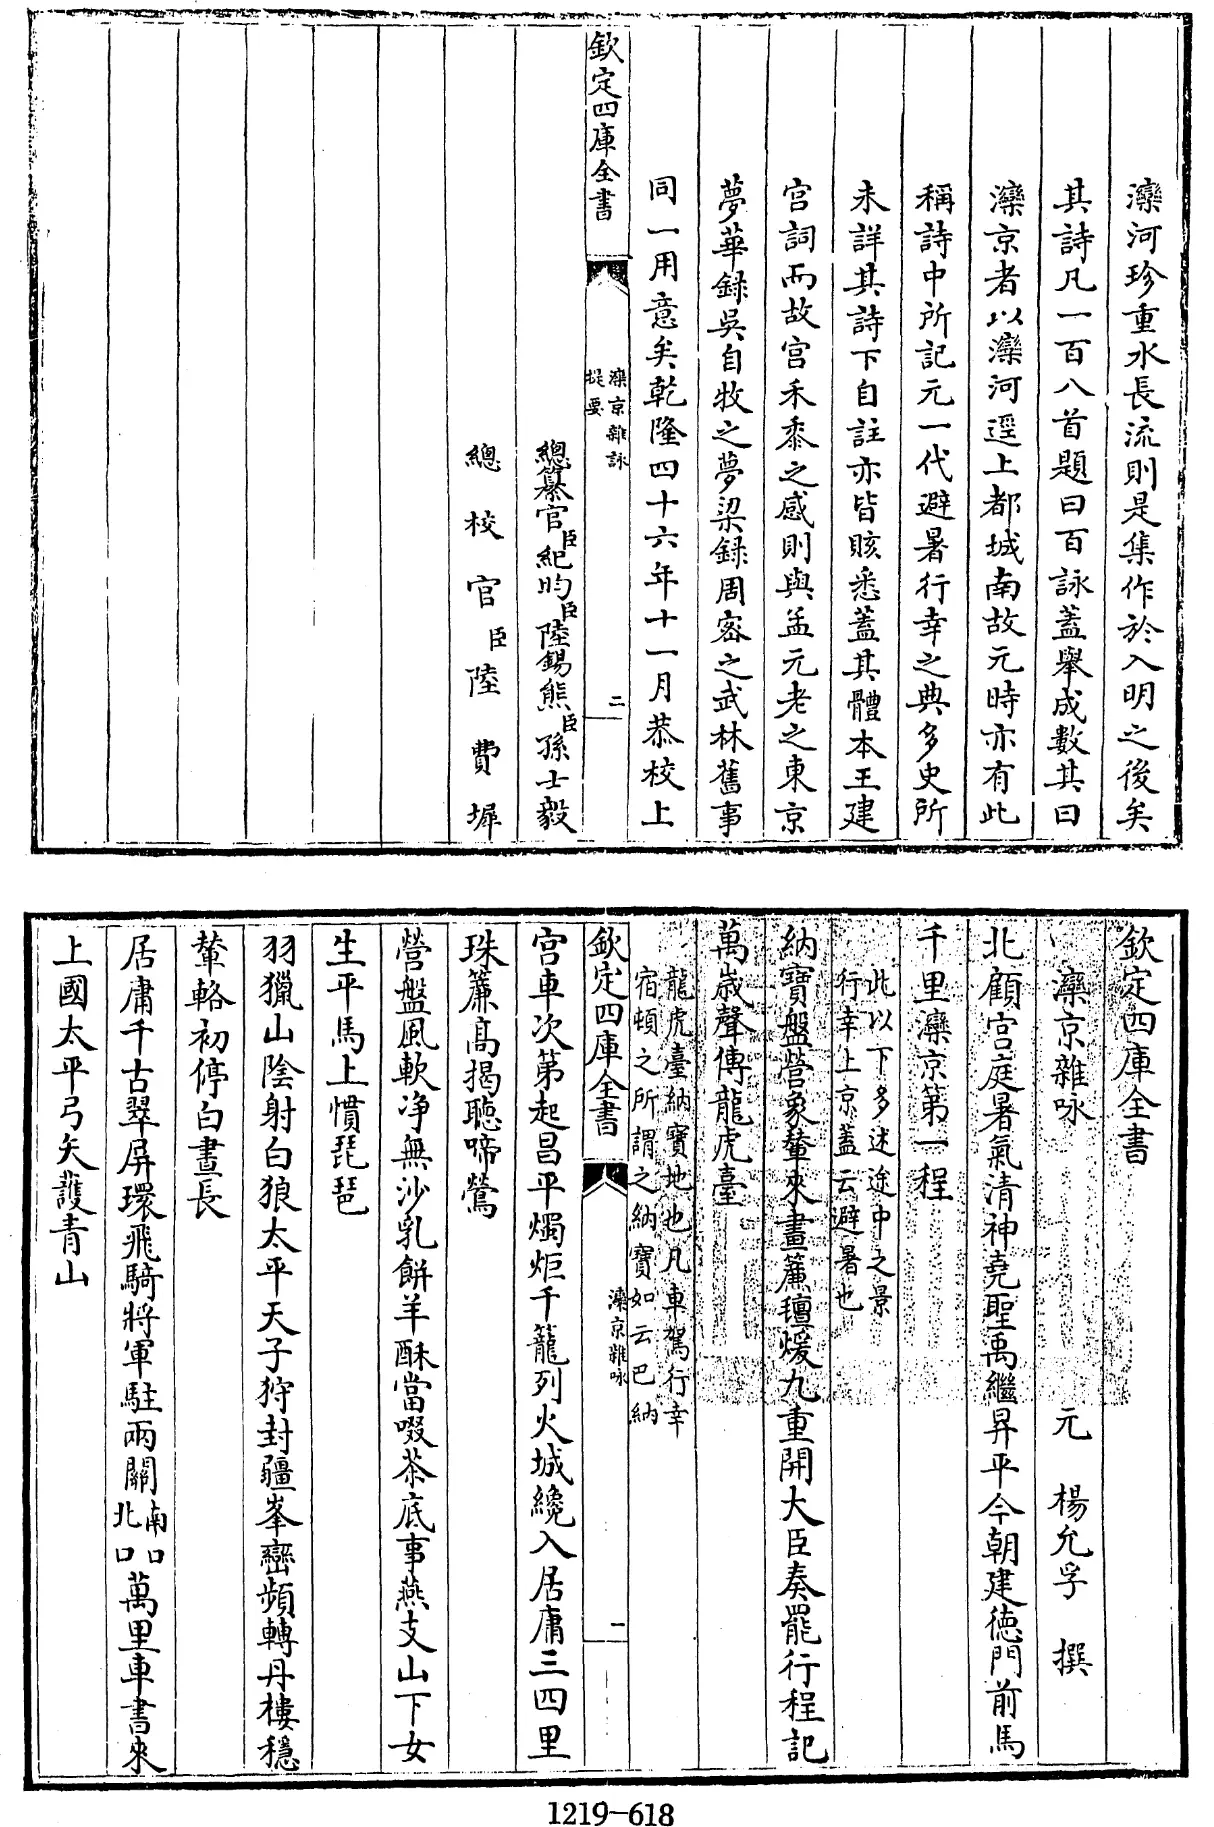 灤河珍重水長流則是集作於入明之後矣
其詩凡一百八首題曰百詠蓋舉成數其曰
灤京者以灤河逕上都城南故元時亦有此
稱詩中所記元一代避暑行幸之典多史所
未詳其詩下自註亦皆賅悉蓋其體本王建
宫詞而故宫禾黍之感則與孟元老之東京
夢華録吳自牧之夢梁録周密之武林舊事
同一用意矣乾隆四十六年十一月恭校上
欽定四庫全書
灤京雜詠
提要
二
總纂官臣紀昀臣陸錫熊臣孫士毅
總校官臣陸費墀
欽定四庫全書
灤京雜咏
元 楊允孚 撰
北顧宫庭暑氣清神堯聖禹繼昇平今朝建德門前馬
千里灤京第一程
此以下多述途中之景
行幸上京蓋云避暑也
納寶盤營象輦來畫簾氊煖九重開大臣奏罷行程記
萬歳聲傳龍虎臺
龍虎臺納寶地也凡車駕行幸
宿頓之所謂之納寶如云巴納
欽定四庫全書
灤京雜咏
一
宫車次第起昌平燭炬千籠列火城纔入居庸三四里
珠簾髙揭聽啼鶯
營盤風軟净無沙乳餅羊酥當啜茶底事燕支山下女
生平馬上慣琵琶
羽獵山陰射白狼太平天子狩封疆峯巒頻轉丹樓穩
輦輅初停白晝長
居庸千古翠屏環飛騎將軍駐兩關南口北口萬里車書來
上國太平弓矢護青山
1219-618